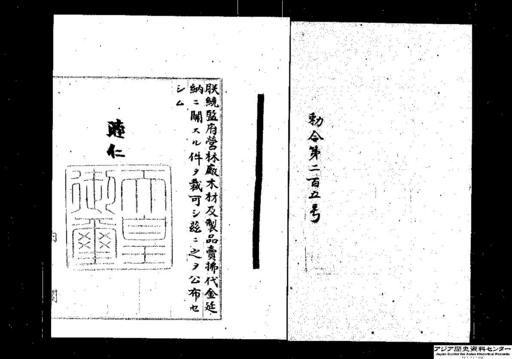 勅令第二百五号
朕統監府営林廠木材及製品賣拂代金延
納ニ關スル件ヲ裁可シ茲ニ之ヲ公布セ
シム
睦仁
天皇
御璽
アジア歴史資料センター
Japan Center for Asian Historical Records